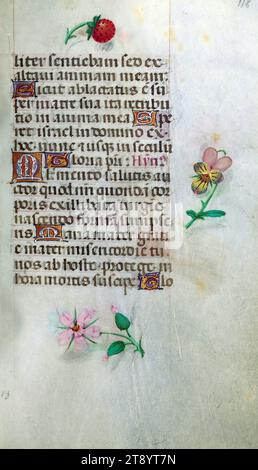 118
liter sentiebam sed ex
altaui animam meam
Sicut ablactatus est su
per matre sua ita retribu
tio in anima mea Spe
ret israel in domino ex
hoc nunc et usque in seculu
Gloria pri Hyn
Memento salutis auc
tor quod nri quondam cor
poris ex illibata uirgine
nascendo formam sumpse
ris Maria mater gratie
mater misericordie tu
nos ab hoste protege in
hora mortis suscipe Glo
alamy
Image ID: 2T8YT7N
www.alamy.com